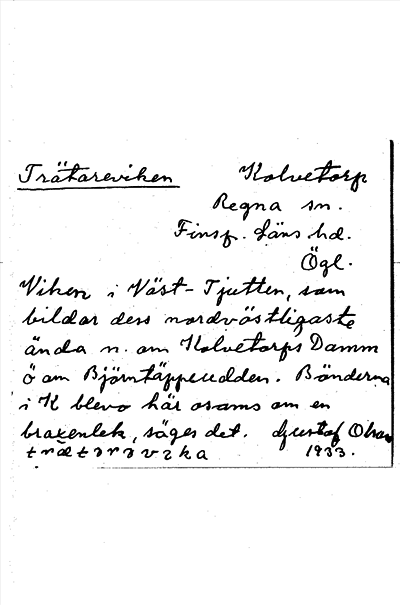 Trätareviken Kolvetorp
Regna sn.
Finsp. Läns hd.
Ögl.
Viken i Väst-Tjutten, som
bildar dess nordvästligaste
ända n. om Kolvetorps Damm
ö om Björntäppeudden. Bönderna
i K blevo här osams om en
braxenlek, säges det. Gustaf Olson
trætərəvika 1933.